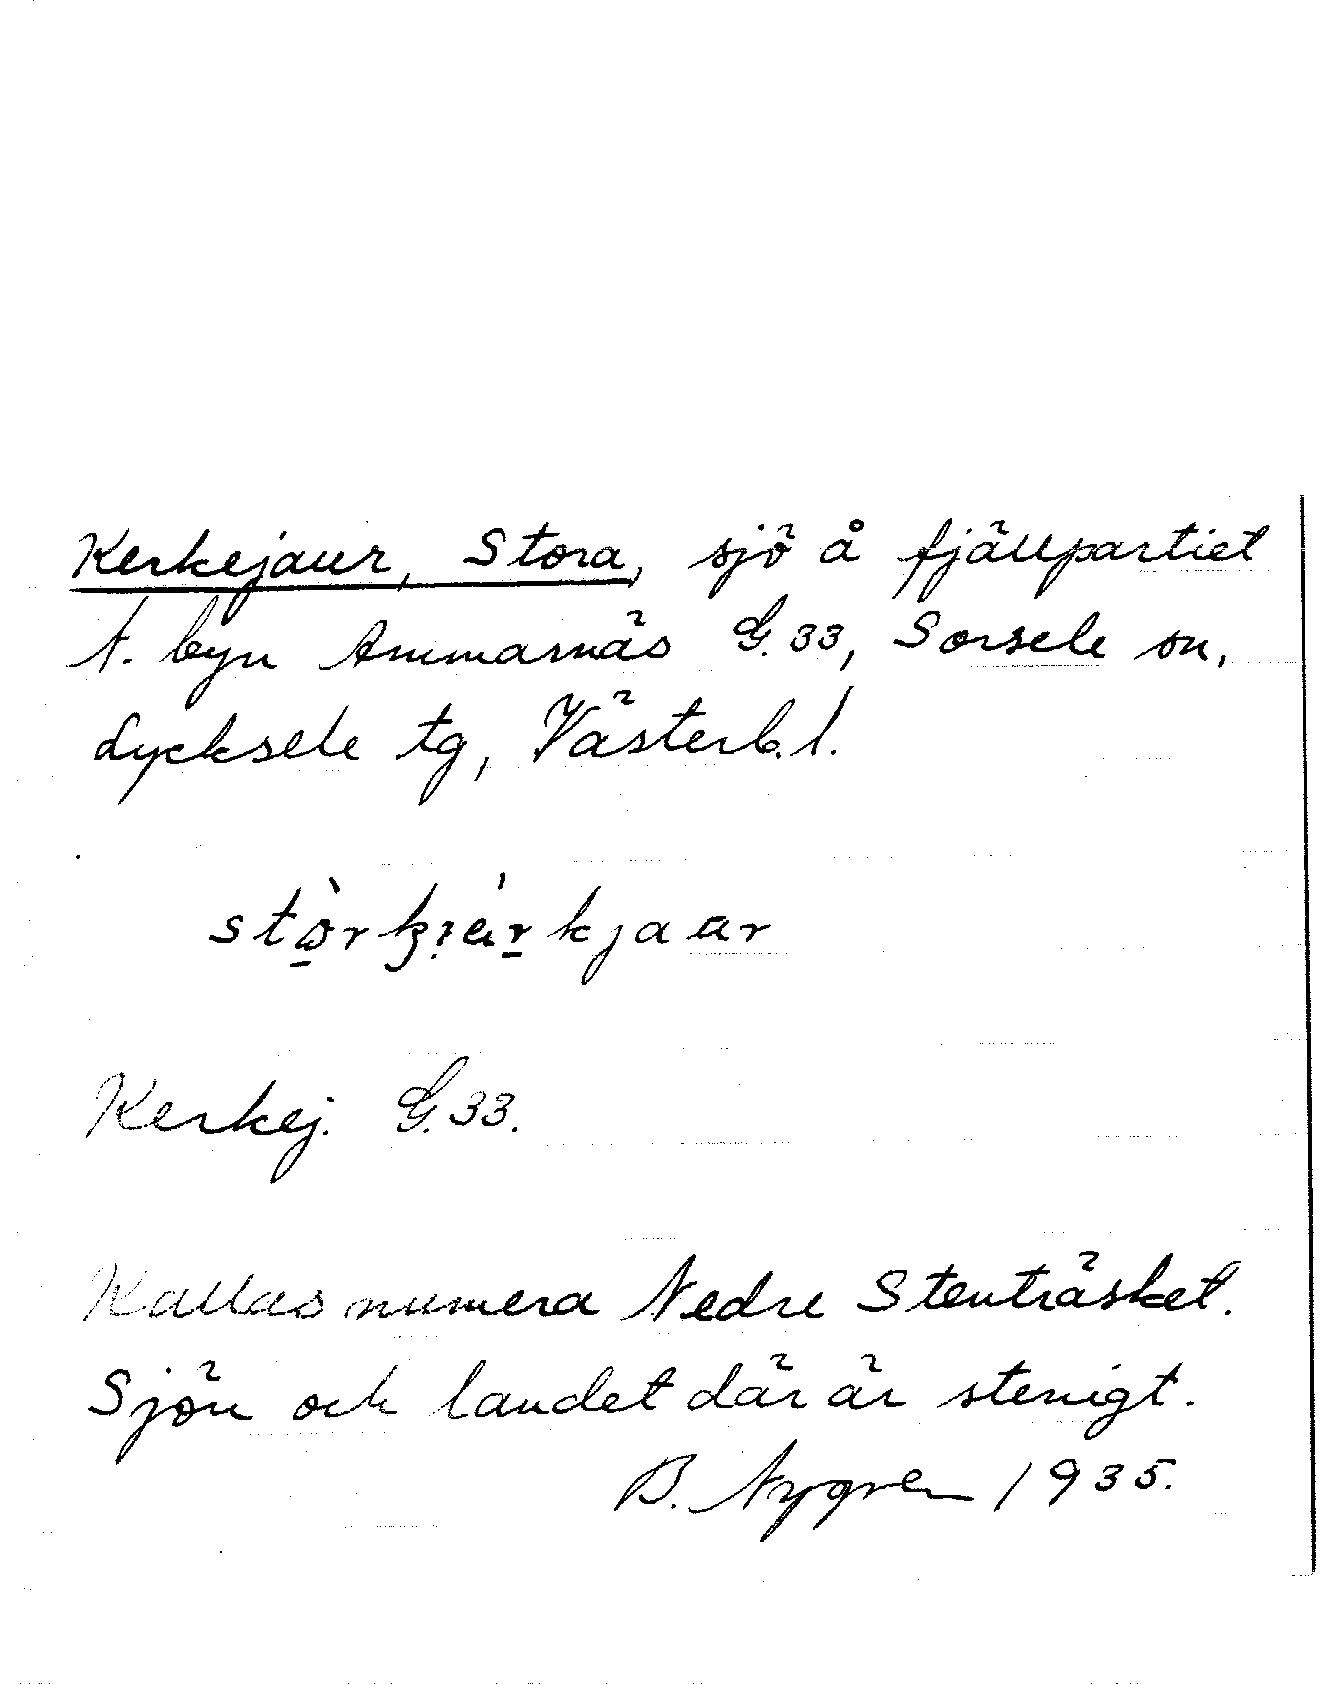 Kerkejaur, Stora, sjö å fjällpartiet
N. byn Ammarnäs G. 33, Sorsele sn,
Lycksele tg, Västerb. l.
Kerkej. G. 33.
Kallas numera Nedre Stenträsket.
Sjön och landet där är stenigt.
B. Nygren 1935.